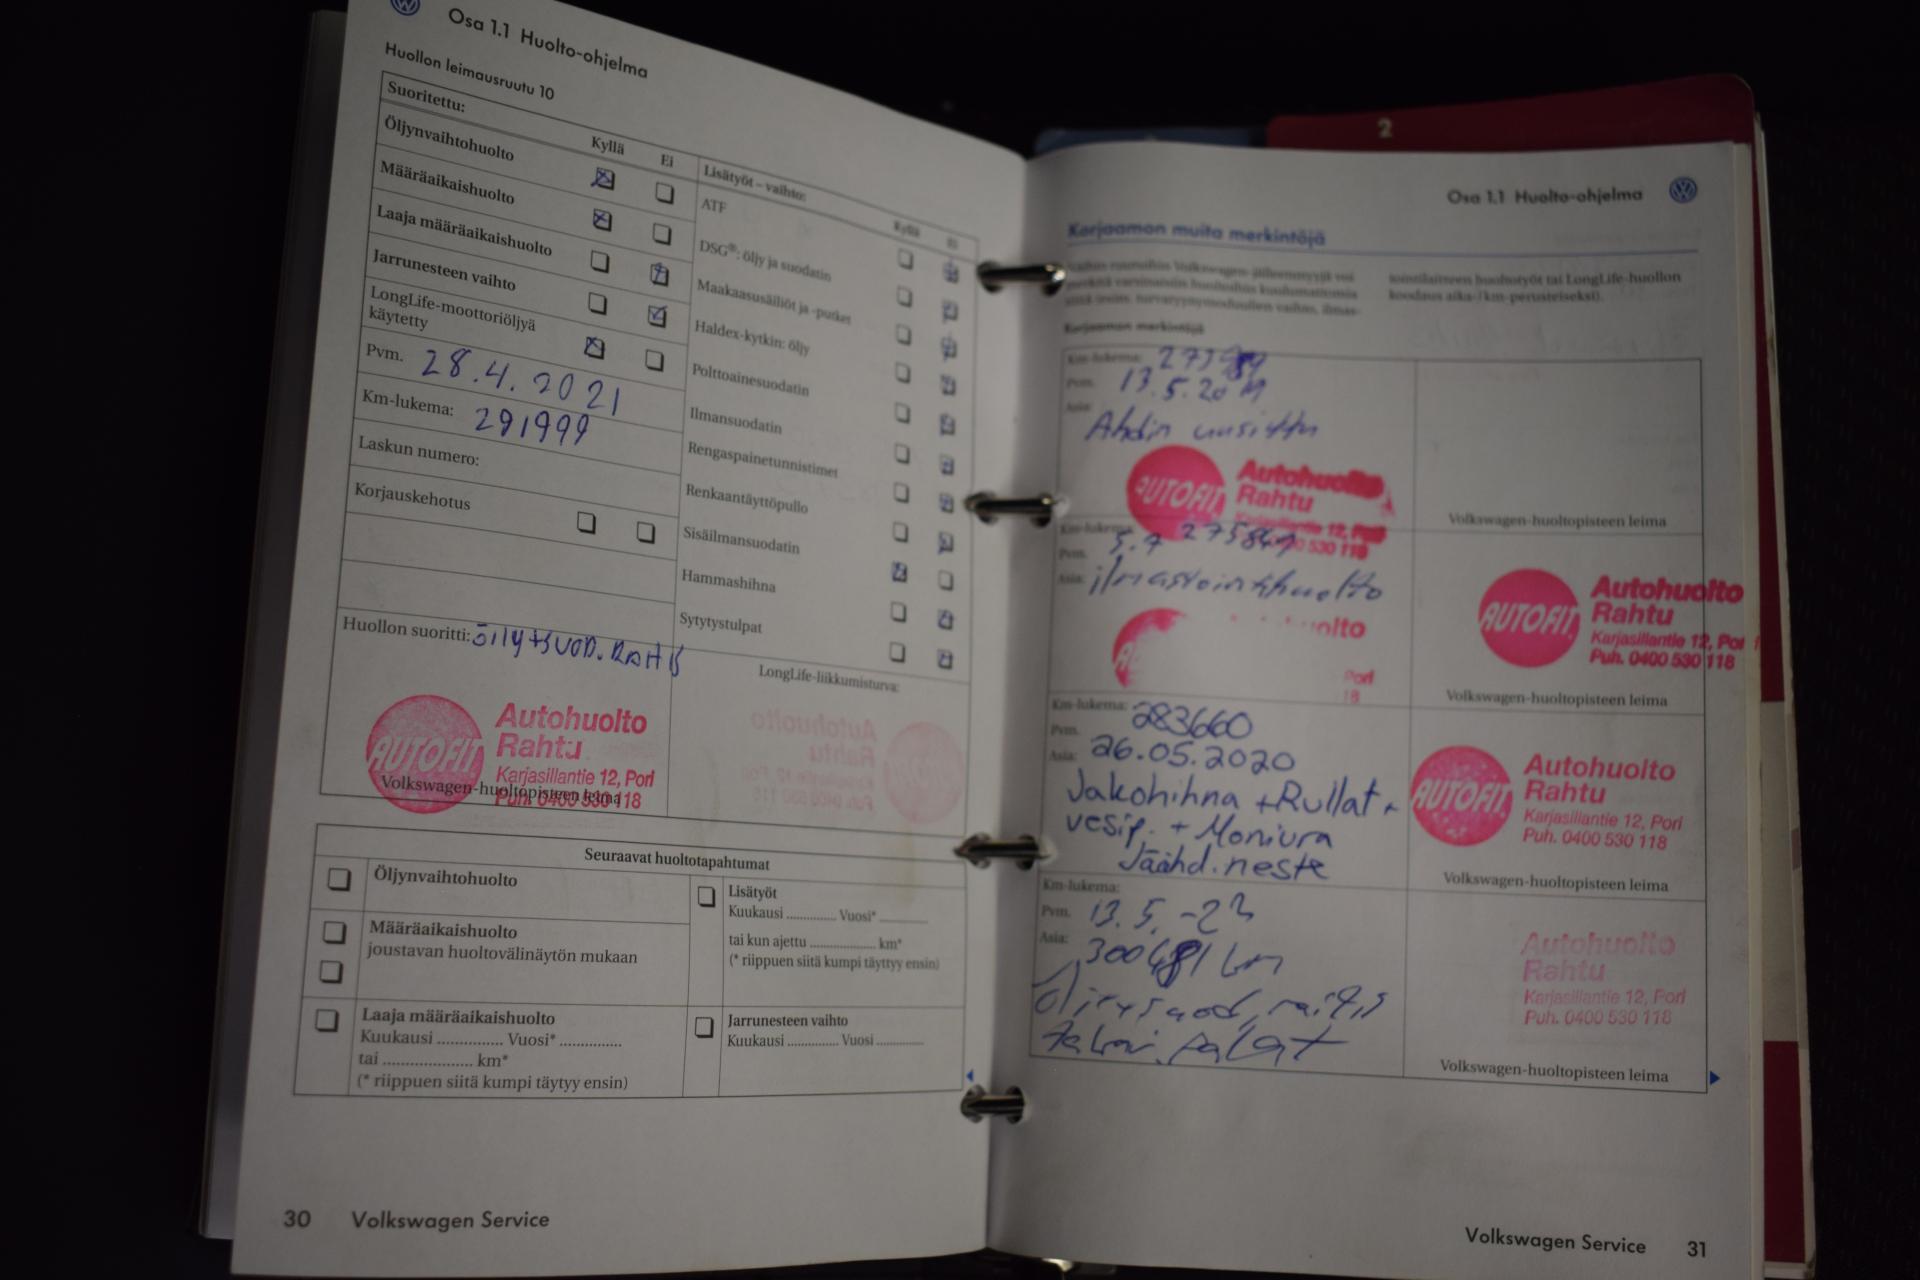 Osa 1.1 Huolto-ohjelma
Huollon leimausruutu 10
Suoritettu:
Kyllä Ei
Öljynvaihtohuolto
Määräaikaishuolto
Laaja määräaikaishuolto
Jarrunesteen vaihto
LongLife-moottoriöljyä
käytetty
Pvm. 28.4.2021
Km-lukema: 291999
Laskun numero:
Korjauskehotus
Huollon suoritti:
AUTOFIT
Autohuolto
Rahtu
Karjasillantie 12, Pori
Puh. 0400 530 118
Volkswagen-huoltopisteen leima
Lisätyöt – vaihto:
Kyllä Ei
ATF
DSG®: öljy ja suodatin
Maakaasusäiliöt ja -putket
Haldex-kytkin: öljy
Polttoainesuodatin
Ilmansuodatin
Rengaspainetunnistimet
Renkaantäyttöpullo
Sisäilmansuodatin
Hammashihna
Sytytystulpat
LongLife-liikkumisturva:
Seuraavat huoltotapahtumat
Öljynvaihtohuolto
Määräaikaishuolto
joustavan huoltovälinäytön mukaan
Laaja määräaikaishuolto
Kuukausi ............... Vuosi* ..............
tai ..................... km*
(* riippuen siitä kumpi täytyy ensin)
Lisätyöt
Kuukausi ............. Vuosi* .............
tai kun ajettu ................. km*
(* riippuen siitä kumpi täyttyy ensin)
Jarrunesteen vaihto
Kuukausi ............. Vuosi .............
30 Volkswagen Service
2
Osa 1.1 Huolto-ohjelma
Korjaamon muita merkintöjä
tointilaitteen huoltotyöt tai LongLife-huollon
koodaus aika-/km-perusteiseksi).
Korjaamon merkintöjä
Km-lukema:
Pvm. 13.5.20
Asia:
Ahdin uusittu
AUTOFIT
Autohuolto
Rahtu
Karjasillantie 12, Pori
0400 530 118
Volkswagen-huoltopisteen leima
Km-lukema:
Pvm. 5.7
Asia: ilmastointihuolto
AUTOFIT
Autohuolto
Rahtu
Karjasillantie 12, Pori
Puh. 0400 530 118
Volkswagen-huoltopisteen leima
Km-lukema: 283660
Pvm. 26.05.2020
Asia:
Jakohihna + Rullat +
vesip. + Moniura
Jäähd.neste
AUTOFIT
Autohuolto
Rahtu
Karjasillantie 12, Pori
Puh. 0400 530 118
Volkswagen-huoltopisteen leima
Km-lukema:
Pvm. 13.5.-23
Asia: 300481 km
Autohuolto
Rahtu
Karjasillantie 12, Pori
Puh. 0400 530 118
Volkswagen-huoltopisteen leima
Volkswagen Service 31